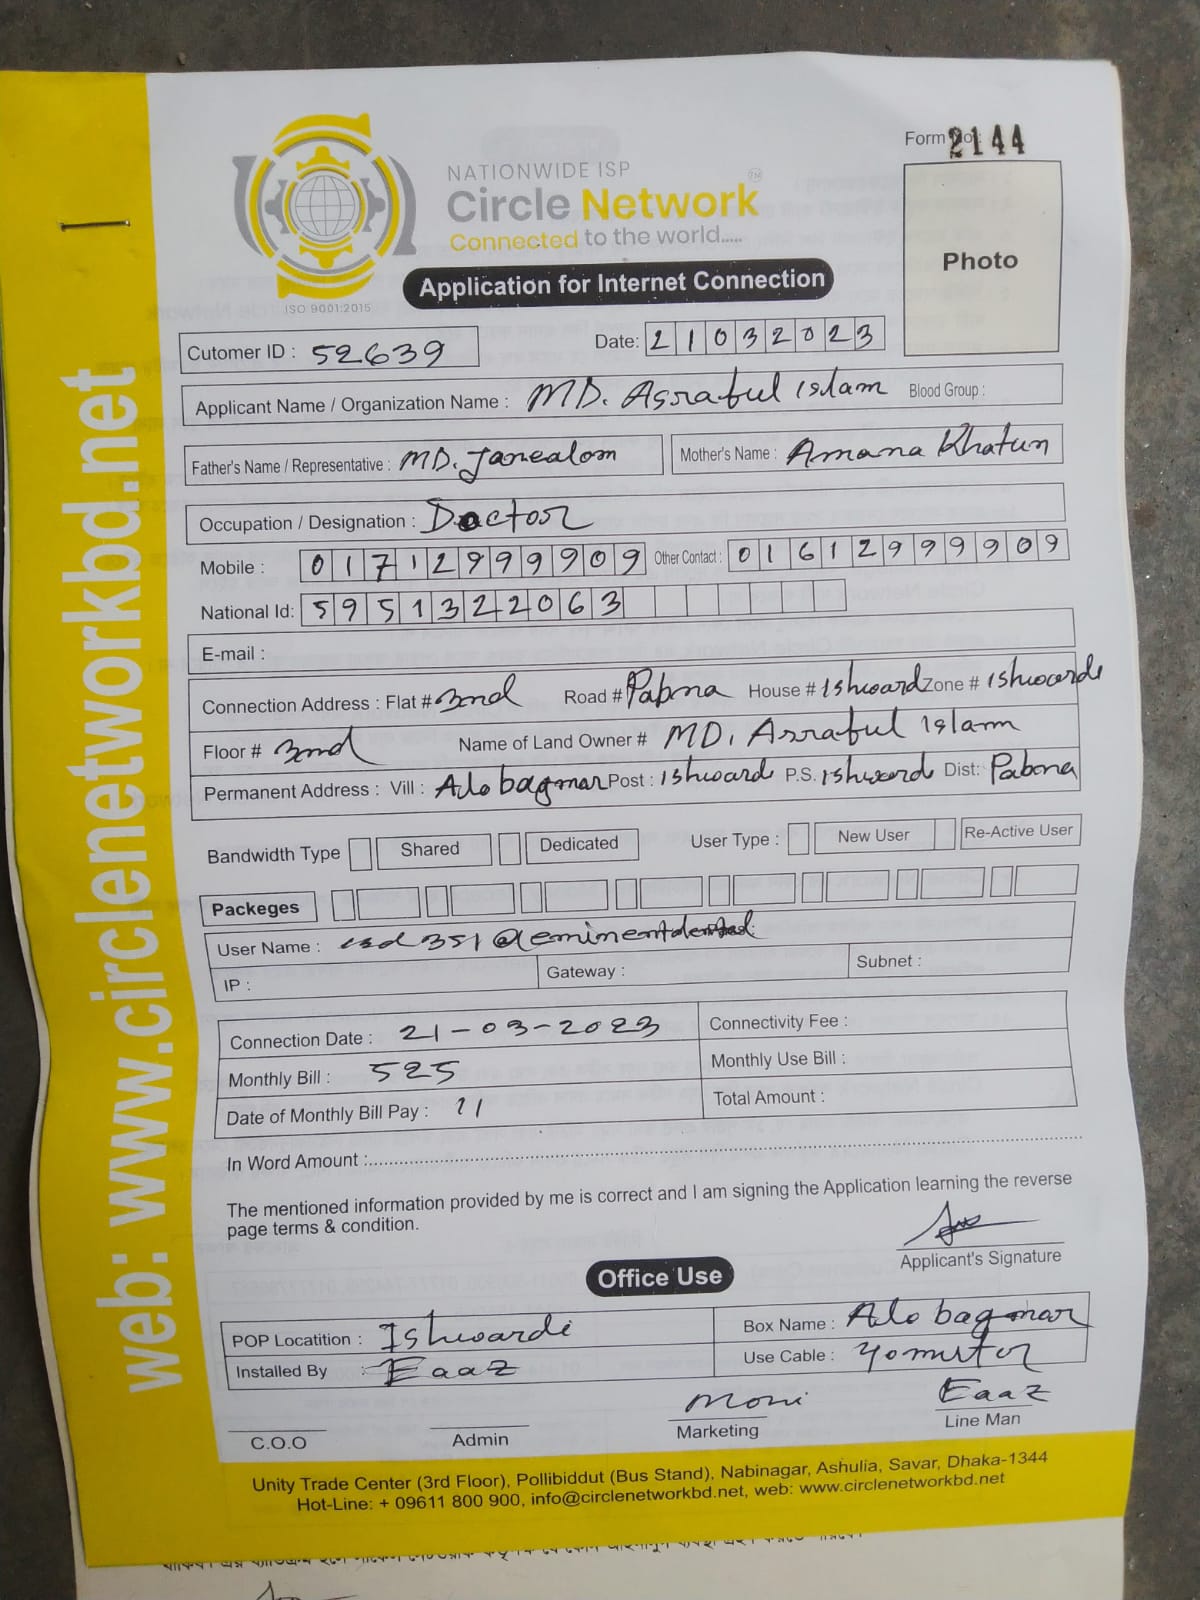 web: www.circlenetworkbd.net
Form No: 2144
NATIONWIDE ISP
Circle Network TM
Connected to the world.....
ISO 9001:2015
Application for Internet Connection
Photo
Cutomer ID : 52639
Date: 21032023
Applicant Name / Organization Name : MD. Asraful islam Blood Group :
Father's Name / Representative : MD. Janealom Mother's Name : Amana Khatun
Occupation / Designation : Doctor
Mobile : 01712999909 Other Contact : 01612999909
National Id: 5951322063
E-mail :
Connection Address : Flat # 2nd Road # Pabna House # Ishward Zone # ishwarde
Floor # 2nd Name of Land Owner # MD. Asraful Islam
Permanent Address : Vill : Alo bagmar Post : ishward P.S. ishward Dist: Pabna
Bandwidth Type Shared Dedicated User Type : New User Re-Active User
Packeges
User Name : isd351@eminentdental
IP : Gateway : Subnet :
Connection Date : 21-03-2023 Connectivity Fee :
Monthly Bill : 525 Monthly Use Bill :
Date of Monthly Bill Pay : 21 Total Amount :
In Word Amount :
The mentioned information provided by me is correct and I am signing the Application learning the reverse
page terms & condition.
Applicant's Signature
Office Use
POP Locatition : Ishwardi Box Name : Alo bagmar
Installed By : Eaaz Use Cable : 40mitor
Moni Eaaz
C.O.O Admin Marketing Line Man
Unity Trade Center (3rd Floor), Pollibiddut (Bus Stand), Nabinagar, Ashulia, Savar, Dhaka-1344
Hot-Line: + 09611 800 900, info@circlenetworkbd.net, web: www.circlenetworkbd.net